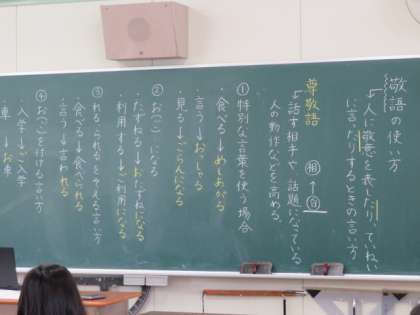 敬語の使い方
↳人に敬意を表したり、ていねい
に言ったりするときの言い方
相 ↑ 自
尊敬語
↳話す相手や、話題になっている
人の動作などを高める。
① 特別な言葉を使う場合
・食べる→めしあがる
・言う→おっしゃる
・見る→ごらんになる
② お(ご)になる
・たずねる→おたずねになる
・利用する→ご利用になる
③ れる、られるを
・食べる→食べられる
・言う→言われる
④ お(ご)を付ける言い方
・入学→ご入学
・車→お車